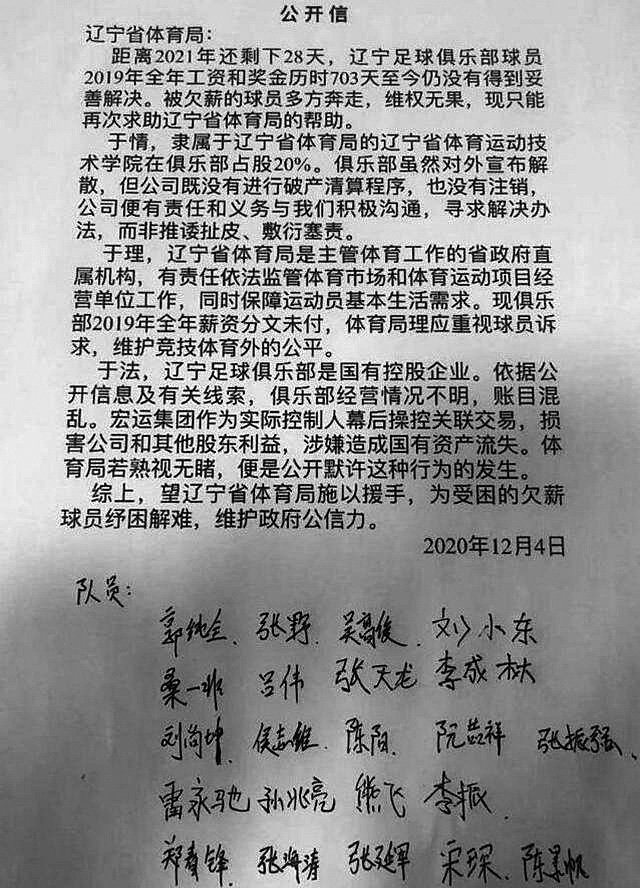 公开信
辽宁省体育局：
距离2021年还剩下28天，辽宁足球俱乐部球员
2019年全年工资和奖金历时703天至今仍没有得到妥
善解决。被欠薪的球员多方奔走，维权无果，现只能
再次求助辽宁省体育局的帮助。
于情，隶属于辽宁省体育局的辽宁省体育运动技
术学院在俱乐部占股20%。俱乐部虽然对外宣布解
散，但公司既没有进行破产清算程序，也没有注销，
公司便有责任和义务与我们积极沟通，寻求解决办
法，而非推诿扯皮、敷衍塞责。
于理，辽宁省体育局是主管体育工作的省政府直
属机构，有责任依法监管体育市场和体育运动项目经
营单位工作，同时保障运动员基本生活需求。现俱乐
部2019年全年薪资分文未付，体育局理应重视球员诉
求，维护竞技体育外的公平。
于法，辽宁足球俱乐部是国有控股企业。依据公
开信息及有关线索，俱乐部经营情况不明，账目混
乱。宏运集团作为实际控制人幕后操控关联交易，损
害公司和其他股东利益，涉嫌造成国有资产流失。体
育局若熟视无睹，便是公开默许这种行为的发生。
综上，望辽宁省体育局施以援手，为受困的欠薪
球员纾困解难，维护政府公信力。
2020年12月4日
队员：
张野 吴高俊 刘小东
桑一非 吕伟 张天龙 李成林
刘尚坤 侯志维 陈阳 张振强
雷永驰 孙兆亮 熊飞 李振
张海涛 张延军 宋琛